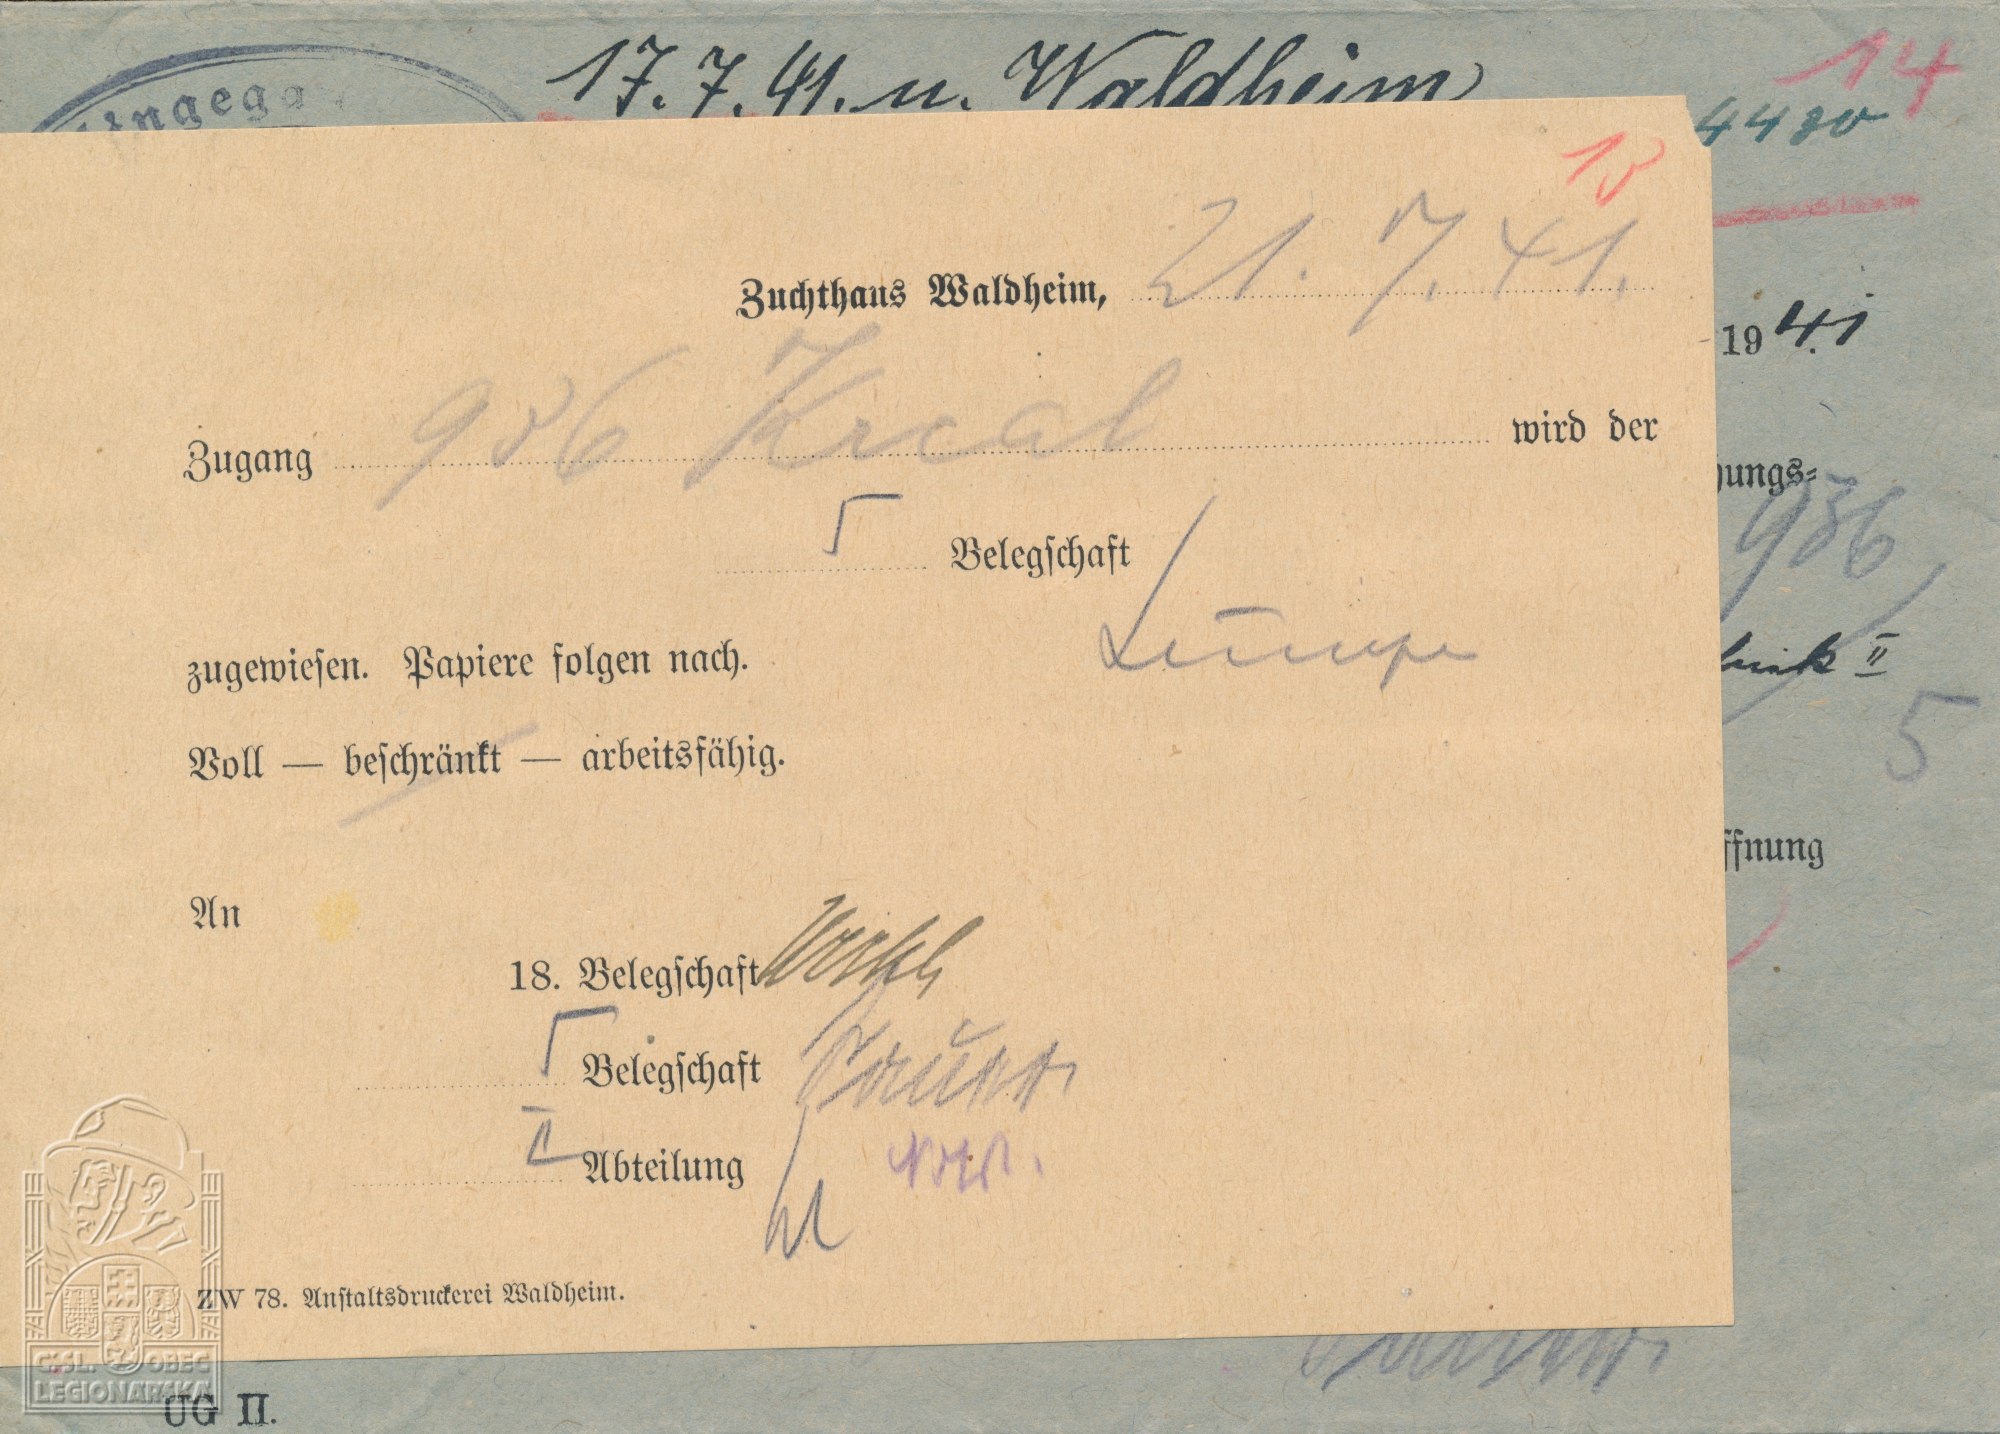 Eingega
17.7.41. n. Waldheim
14
4480
15
Zuchthaus Waldheim, 21. 7. 41.
1941
Zugang 936 Krcal wird der
hungs-
936
5 Belegschaft
zugewiesen. Papiere folgen nach.
II
5
Voll — beschränkt — arbeitsfähig.
ffnung
An
18. Belegschaft
5 Belegschaft
II Abteilung
ZW 78. Anstaltsdruckerei Waldheim.
ČSL. OBEC
LEGIONÁŘSKÁ
UG II.